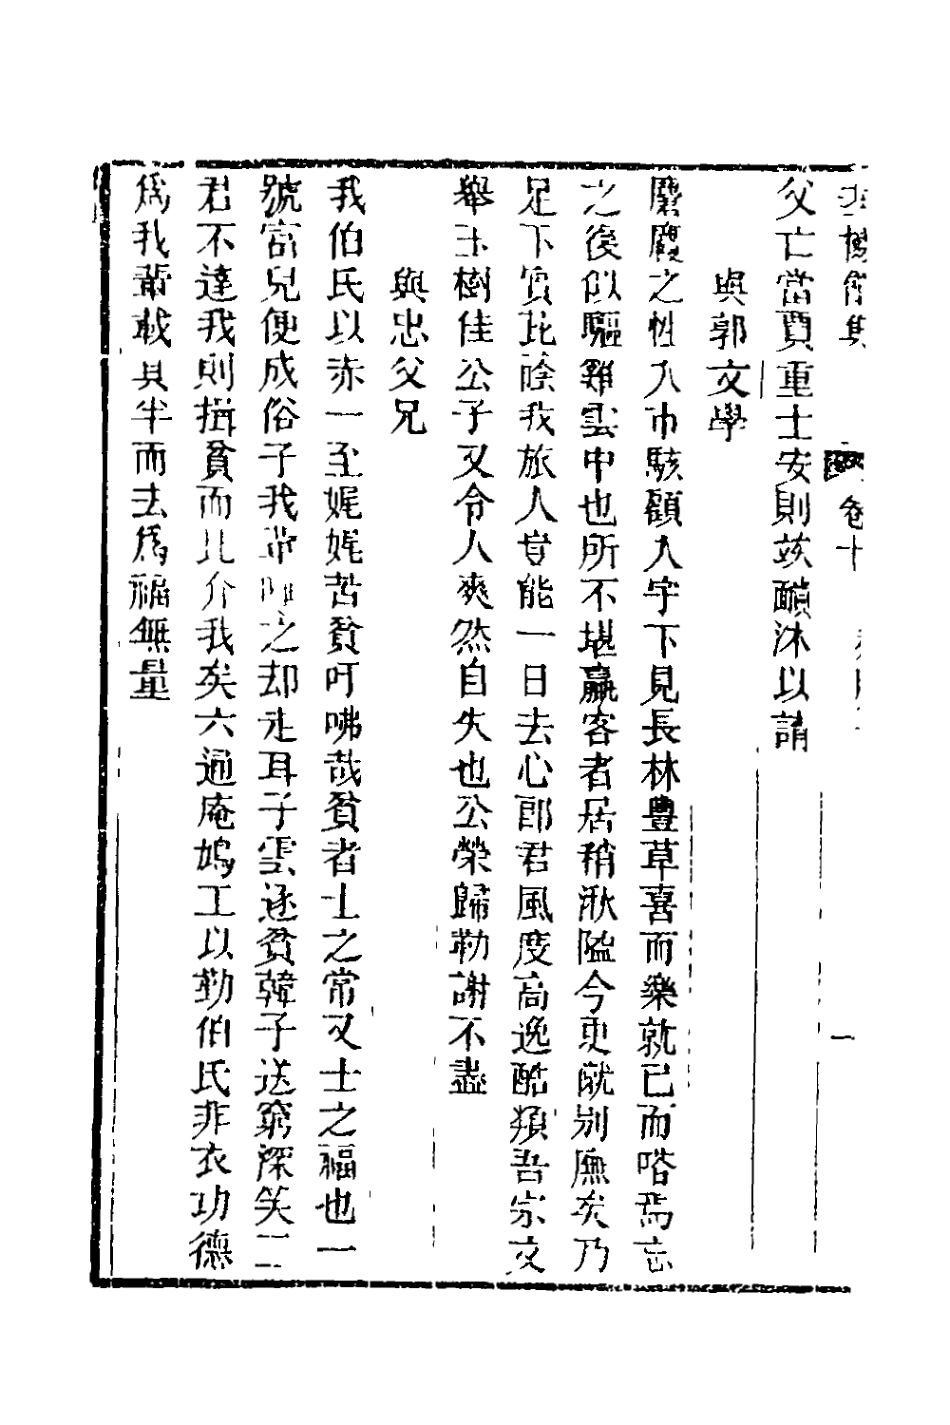 卷十
父亡當賈重士安則茲醻沐以請
與郭文學
麋麌之性入市駭顧入字下見長林豊草喜而樂就已而嗒焉忘
之後似驅雞雲中也所不堪羸客者居稍湫隘今更僦別廡矣乃
足下實庇蔭我旅人豈能一日去心郎君風度高逸酷類吾宗文
舉玉樹佳公子又令人爽然自失也公榮歸勒謝不盡
與忠父兄
我伯氏以赤一至娓娓苦貧吁咈哉貧者士之常又士之福也一
號富兒便成俗子我 之却走耳子雲逐貧韓子送窮深笑二
君不達我則揖貧而比介我矣六通庵鳩工以勤伯氏非衣功德
爲我輩載其半而去爲福無量